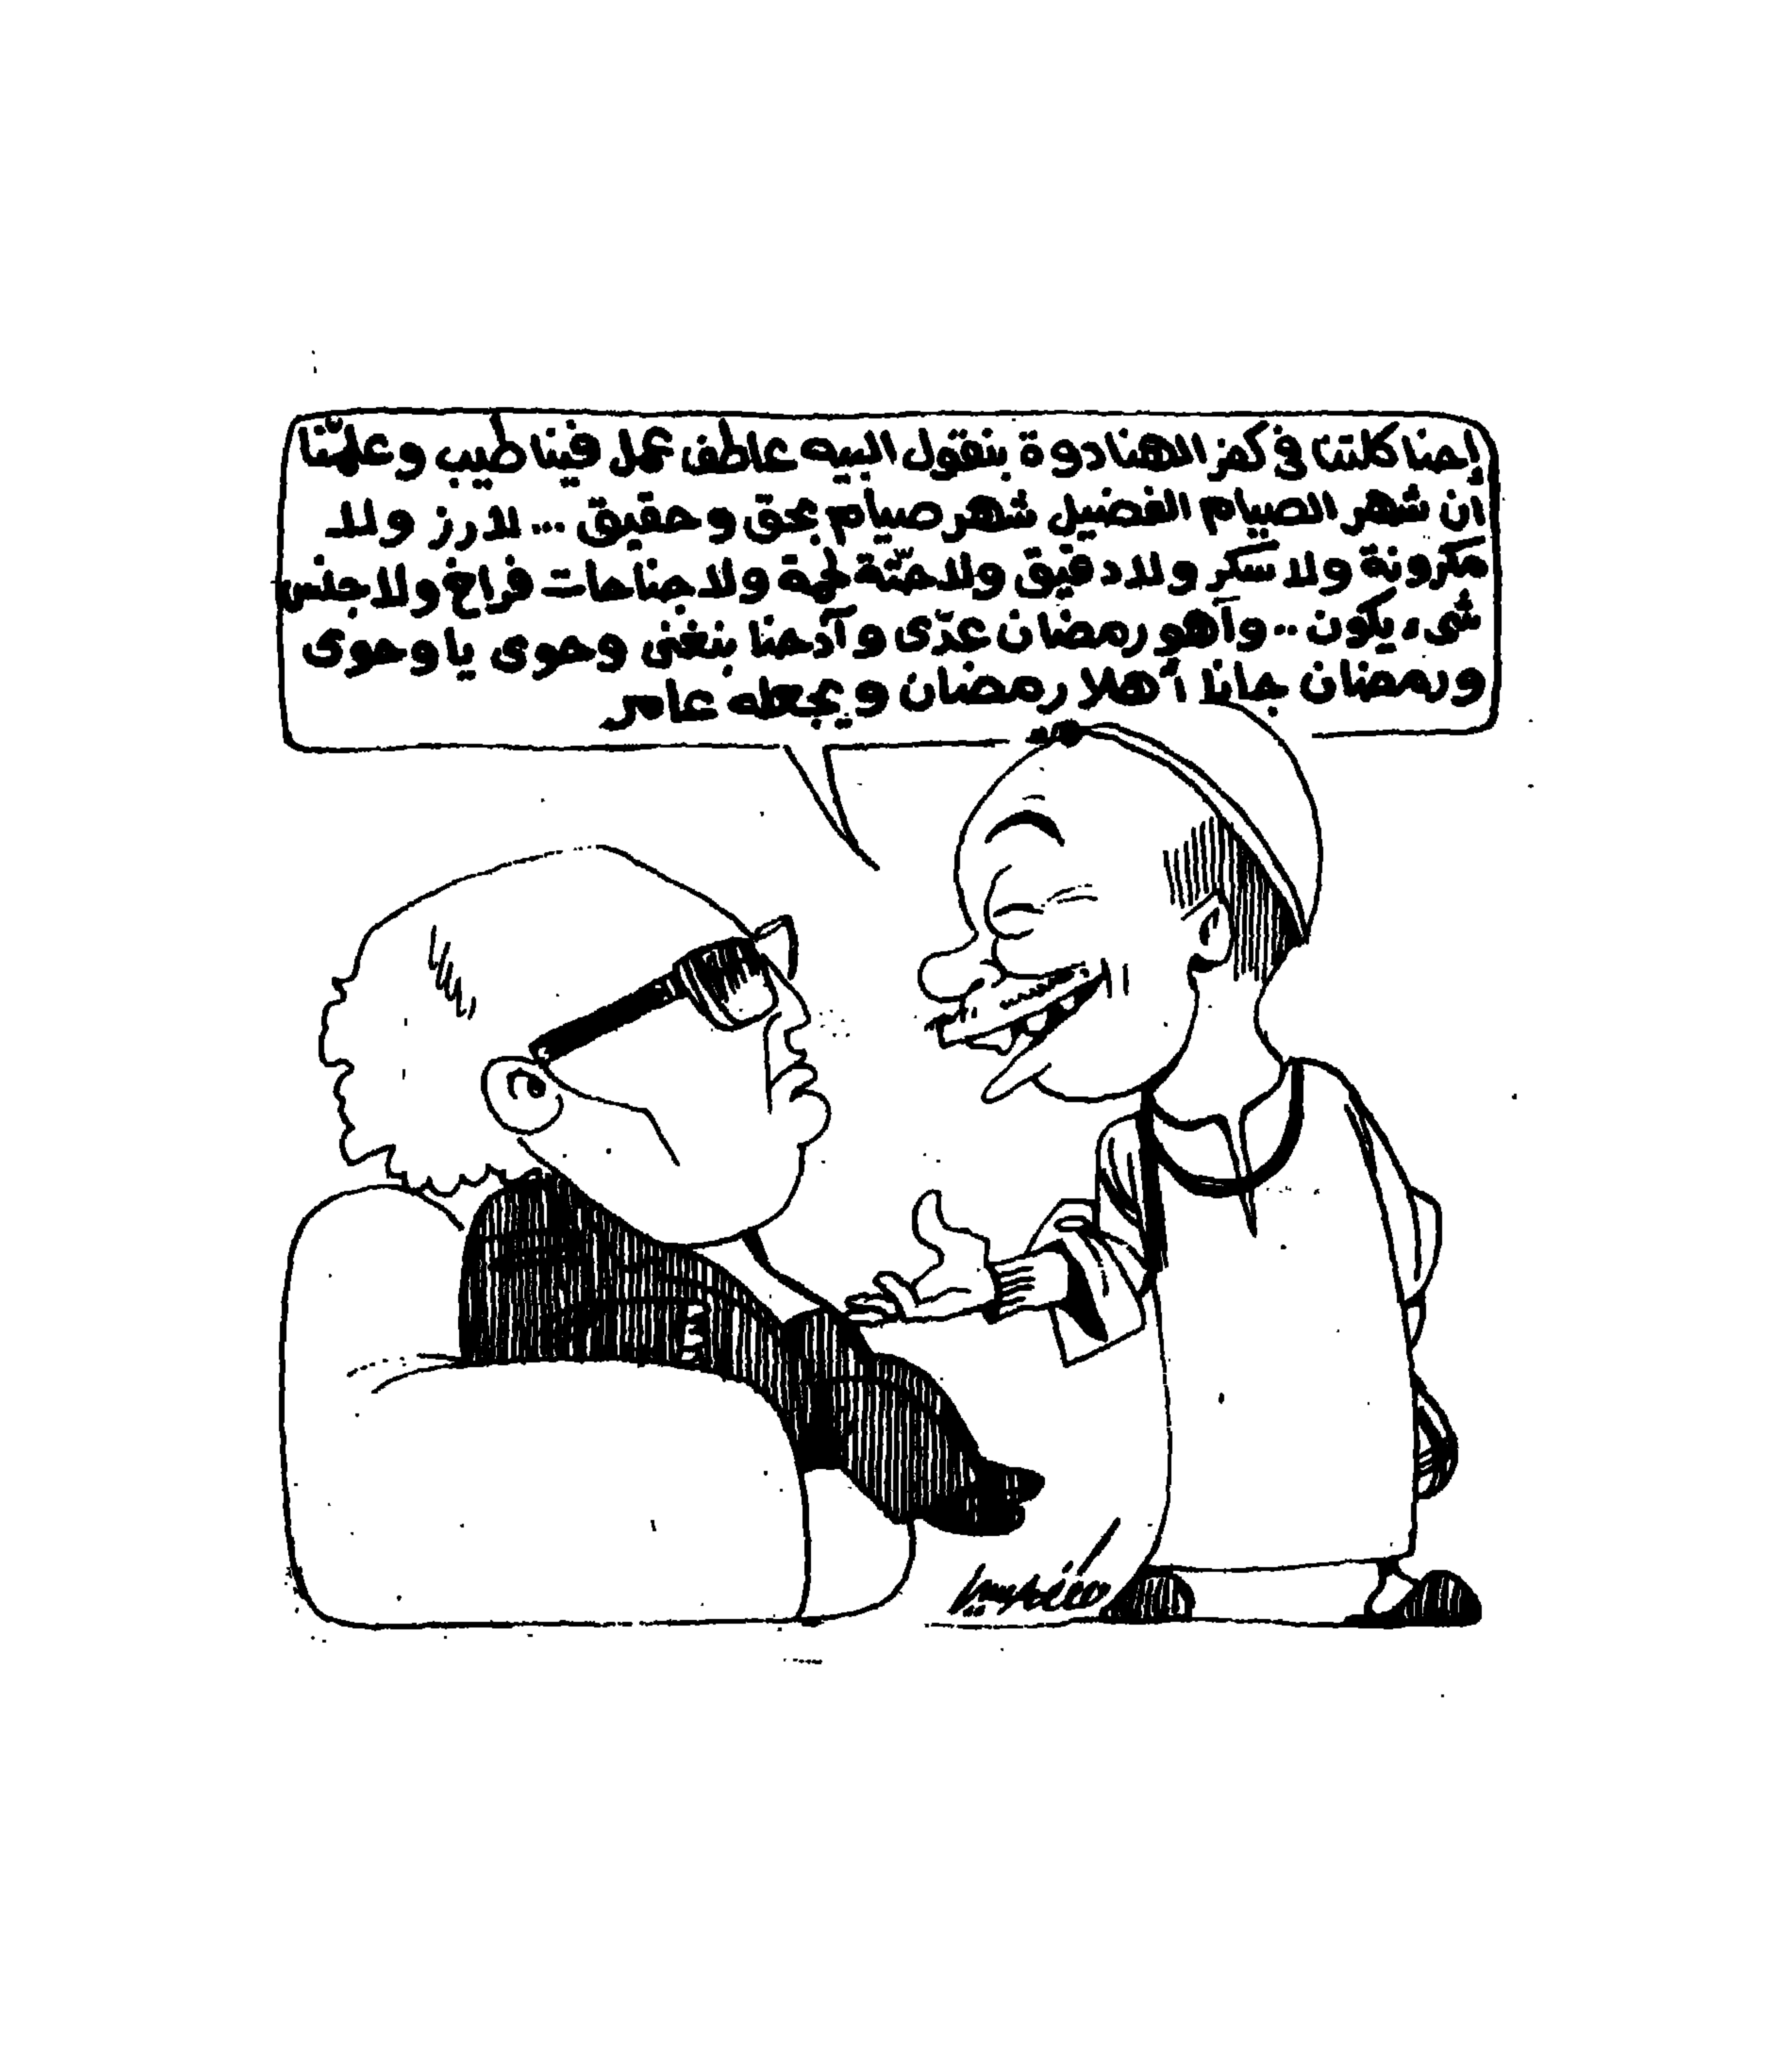 إحنا كلتنا فى كفر الهنادوة بنقول البيه عاطف عمل فينا طيب وعلمنا
أن شهر الصيام الفضيل شهر صيام بحق وحقيق ... لا رز ولا
مكرونة ولا سكر ولا دقيق ولا حتّة لحمة ولا جناحات فراخ ولا جنس
شىء يكون .. وآهو رمضان عدّى وآدحنا بنغنى وحوى يا وحوى
ورمضان جانا أهلا رمضان ويجعله عامر